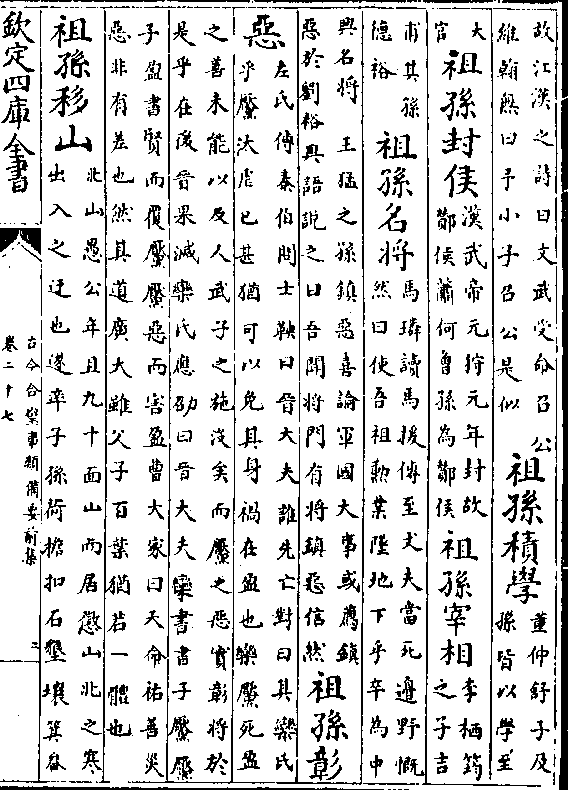 故江漢之詩曰文武受命召公
維翰無曰予小子召公是似
祖孫積學
董仲舒子及
孫皆以學至
大
官
祖孫封侯
漢武帝元狩元年封故
鄼侯蕭何曾孫為鄼侯
祖孫宰相
李栖筠
之子吉
甫其孫
德裕
祖孫名將
馬璘讀馬援傳至丈夫當死邊野慨
然曰使吾祖勲業墜地下乎卒為中
興名將　王猛之孫鎮惡喜論軍國大事或薦鎮
惡於劉裕與語說之曰吾聞將門有將鎮惡信然
祖孫彰
惡
左氏傳秦伯問士鞅曰晉大夫誰先亡對曰其欒氏
乎黶汰虐已甚猶可以免其身禍在盈也欒黶死盈
之善未能以及人武子之施沒矣而黶之惡實彰將於
是乎在後晉果滅欒氏應劭曰晉大夫欒書書子黶黶
子盈書賢而覆黶黶惡而害盈曹大家曰天命祐善災
惡非有差也然其道廣大雖父子百葉猶若一體也
祖孫移山
北山愚公年且九十面山而居懲山北之寒
出入之迂也遂率子孫荷擔扣石墾壤箕畚
欽定四庫全書
古今合璧事類備要前集
卷二十七
二